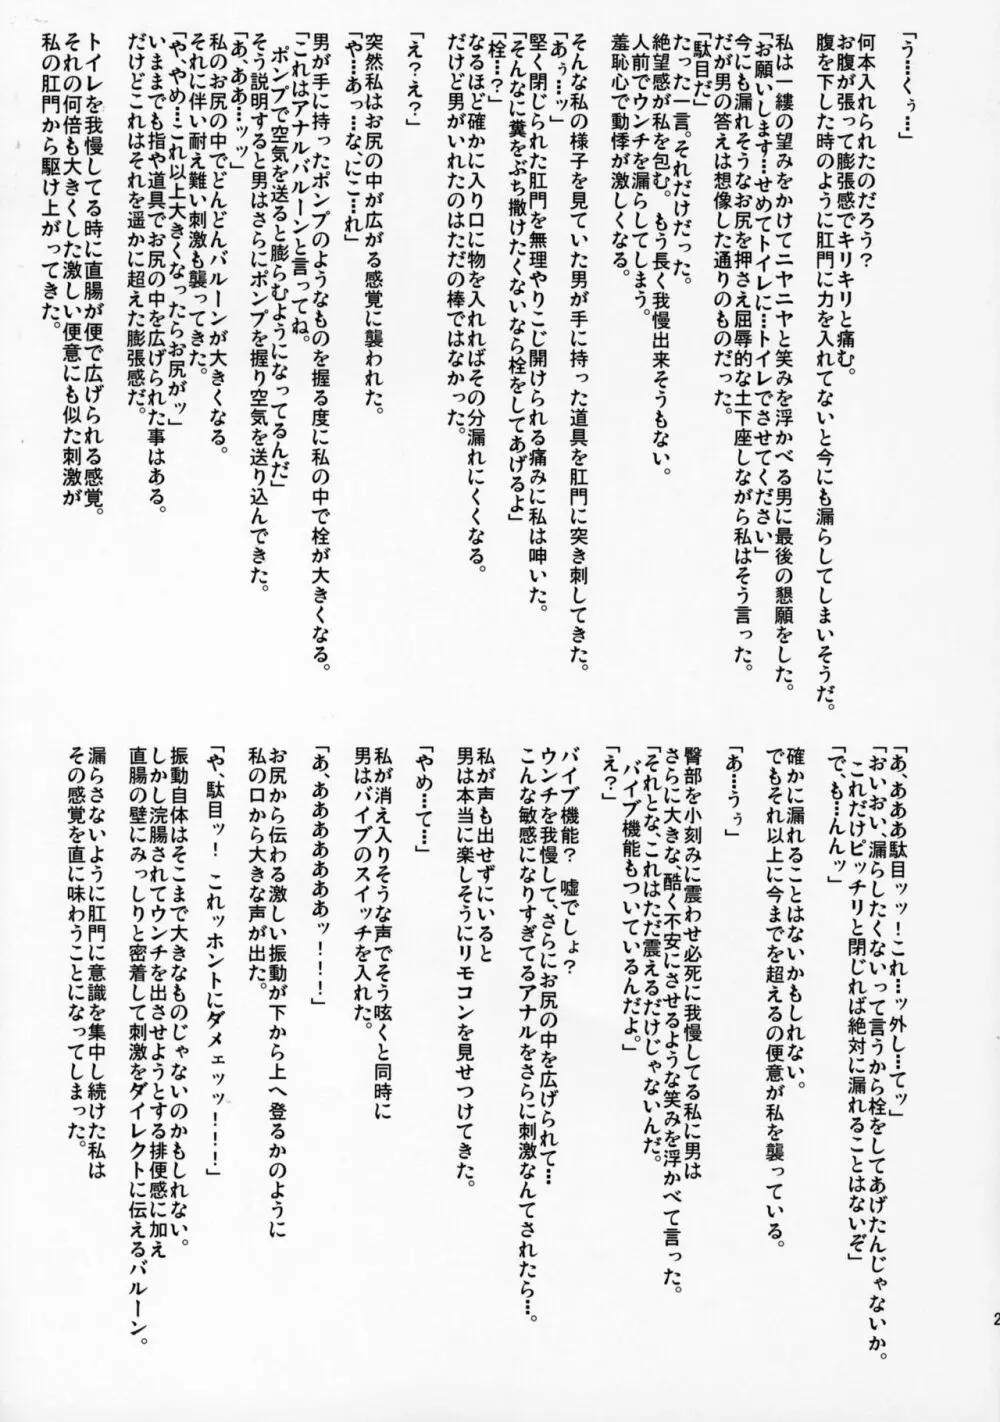 「う…くぅ…」
何本入れられたのだろう?
お腹が張って膨張感でキリキリと痛む。
腹を下した時のように肛門に力を入れてないと今にも漏らしてしまいそうだ。
私は一縷の望みをかけてニヤニヤと笑みを浮かべる男に最後の懇願をした。
「お願いします…せめてトイレに…トイレでさせてください」
今にも漏れそうなお尻を押さえ屈辱的な土下座しながら私はそう言った。
だが男の答えは想像した通りのものだった。
「駄目だ」
たった一言。それだけだった。
絶望感が私を包む。もう長く我慢出来そうもない。
人前でウンチを漏らしてしまう。
羞恥心で動悸が激しくなる。
そんな私の様子を見ていた男が手に持った道具を肛門に突き刺してきた。
「あぅ…ッ」
堅く閉じられた肛門を無理やりこじ開けられる痛みに私は呻いた。
「そんなに糞をぶち撒けたくないなら栓をしてあげるよ」
「栓…?」
なるほど確かに入り口に物を入れればその分漏れにくくなる。
だけど男がいれたのはただの棒ではなかった。
「え?え?」
突然私はお尻の中が広がる感覚に襲われた。
「や…あっ…な、にこ…れ」
男が手に持ったポンプのようなものを握る度に私の中で栓が大きくなる。
「これはアナルバルーンと言ってね。
ポンプで空気を送ると膨らむようになってるんだ」
そう説明すると男はさらにポンプを握り空気を送り込んできた。
「あ、ああ…ッッ」
私のお尻の中でどんどんバルーンが大きくなる。
それに伴い耐え難い刺激も襲ってきた。
「や、やめ…これ以上大きくなったらお尻がッ」
いままでも指や道具でお尻の中を広げられた事はある。
だけどこれはそれを遥かに超えた膨張感だ。
トイレを我慢してる時に直腸が便で広げられる感覚。
それの何倍も大きくした激しい便意にも似た刺激が
私の肛門から駆け上がってきた。
「あ、あああ駄目ッッ!これ…ッ外し…てッ」
「おいおい、漏らしたくないって言うから栓をしてあげたんじゃないか。
これだけピッチリと閉じれば絶対に漏れることはないぞ」
「で、も…んんッ」
確かに漏れることはないかもしれない。
でもそれ以上に今までを超えるの便意が私を襲っている。
「あ…うぅ」
臀部を小刻みに震わせ必死に我慢してる私に男は
さらに大きな、酷く不安にさせるような笑みを浮かべて言った。
「それとな、これはただ震えるだけじゃないんだ。
バイブ機能もついているんだよ。」
「え?」
バイブ機能? 嘘でしょ?
ウンチを我慢して、さらにお尻の中を広げられて…
こんな敏感になりすぎてるアナルをさらに刺激なんてされたら…。
私が声も出せずにいると
男は本当に楽しそうにリモコンを見せつけてきた。
「やめ…て…」
私が消え入りそうな声でそう呟くと同時に
男はバイブのスイッチを入れた。
「あ、ああああああぁッ!!!」
お尻から伝わる激しい振動が下から上へ登るかのように
私の口から大きな声が出た。
「や、駄目ッ! これッホントにダメェッッ!!!」
振動自体はそこまで大きなものじゃないのかもしれない。
しかし浣腸されてウンチを出させようとする排便感に加え
直腸の壁にみっしりと密着して刺激をダイレクトに伝えるバルーン。
漏らさないように肛門に意識を集中し続けた私は
その感覚を直に味わうことになってしまった。
2